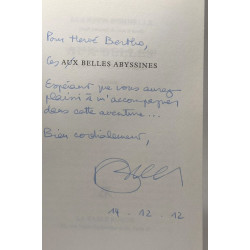 Pour Hervé Berthe,
Ces AUX BELLES ABYSSINES
Espérant que vous aurez
plaisir à m'accompagner
dans cette aventure...
Bien cordialement,
14.12.12